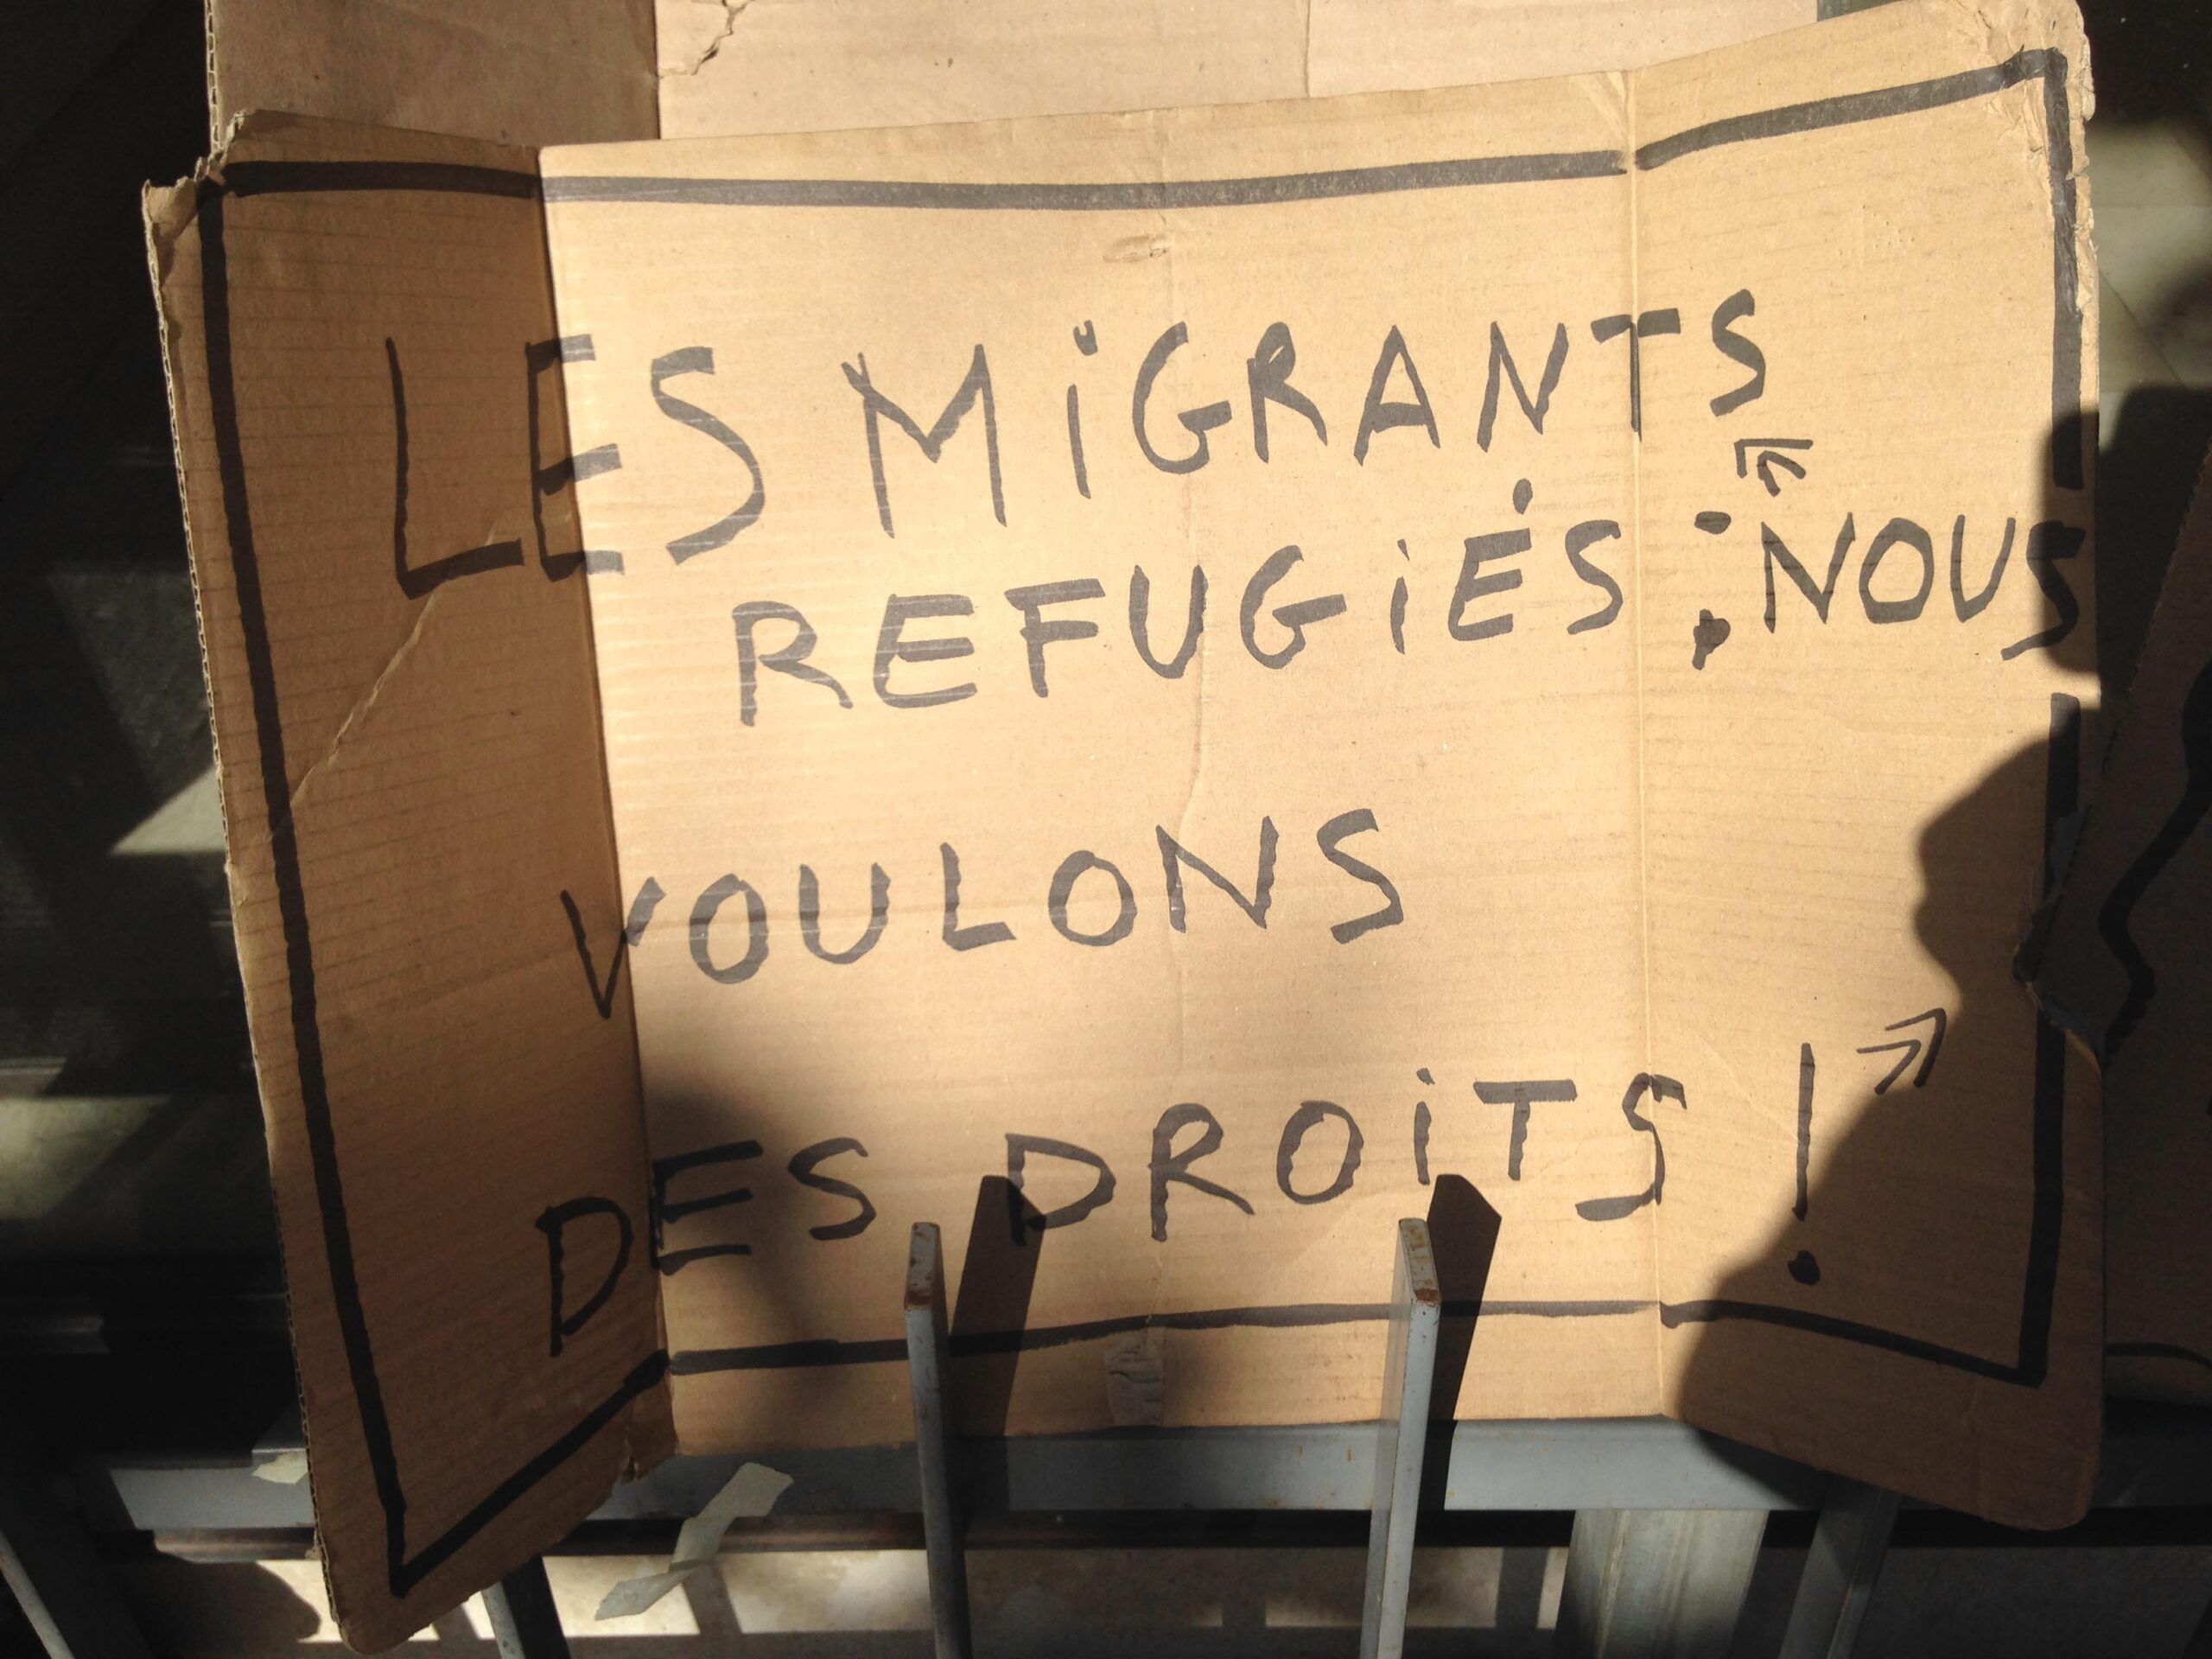 LES MiGRANTS
REFUGiÉS ; NOUS
VOULONS
DES DROiTS !